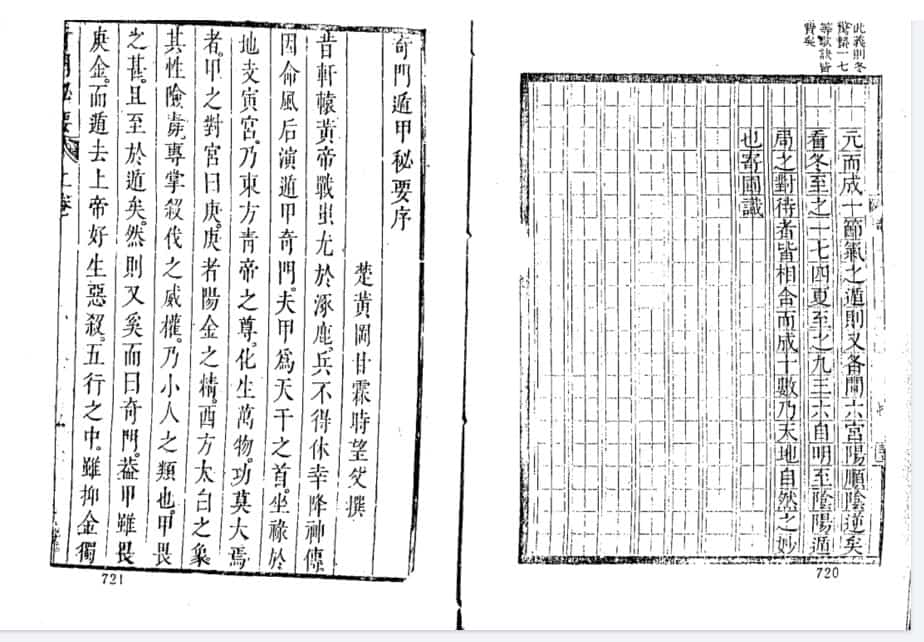 此義則冬
一七
等歌訣皆
費矣
元而成一節氣之遁則又各閒六宮陽順陰逆矣
看冬至之一七四夏至之九三六自明至陰陽遁
局之對待者皆相合而成十數乃天地自然之妙
也寄圖識
720
奇門遁甲秘要序
楚黃岡甘霖時望父撰
昔軒轅黃帝戰蚩尤於涿鹿。兵不得休幸降神傳
因命風后演遁甲奇門。夫甲爲天干之首。坐祿於
地支寅宮。乃東方青帝之尊。化生萬物。功莫大焉
者。甲之對宮曰庚。庚者陽金之精。西方太白之象
其性險毒。專掌殺伐之威權。乃小人之類也。甲畏
之甚。且至於遁矣。然則又奚而曰奇門。葢甲雖畏
庚金。而遁去上帝好生惡殺。五行之中。雖抑金獨
奇門秘要 上卷
721